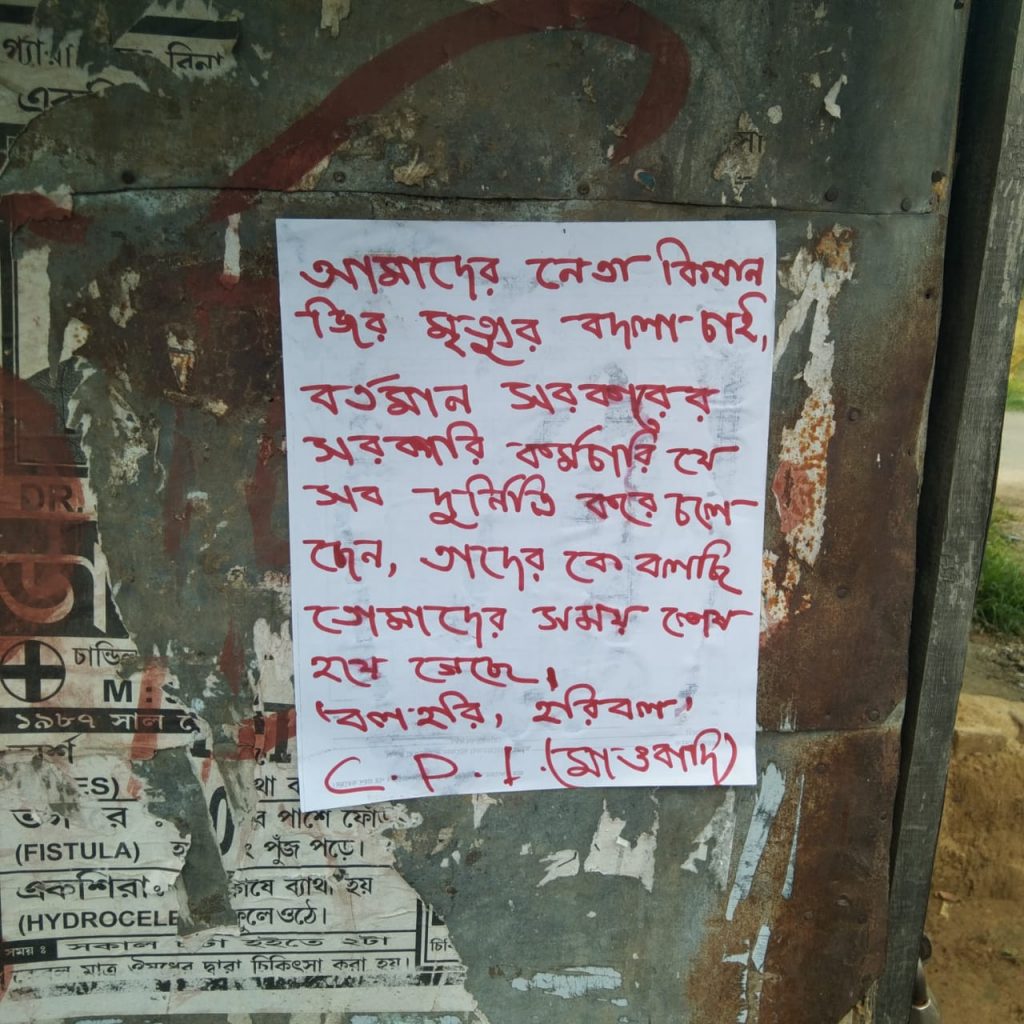 গ্যারা
রিনা
আমাদের নেতা কিষান
জির মৃত্যুর বদলা চাই,
বর্তমান সরকারের
সরকারি কর্মচারি যে
সব দুর্নিতি করে চলে
ছেন, তাদের কে বলছি
তোমাদের সময় শেষ
হযে গেছে,
'বল হরি, হরিবল'
C.P.I.(মাওবাদি)
DR.
চান্ডিল
M:
১৯৮৭ সাল
ES)
থা ব
র পাশে ফোড
(FISTULA)
পুঁজ পড়ে।
একশিরাঃ
ব্যাথা হয়
(HYDROCELE
ফুলে ওঠে।
সময় ঃ সকাল
টা হইতে ২টা
মাত্র ঔষধের দ্বারা চিকিৎসা করা হয়।